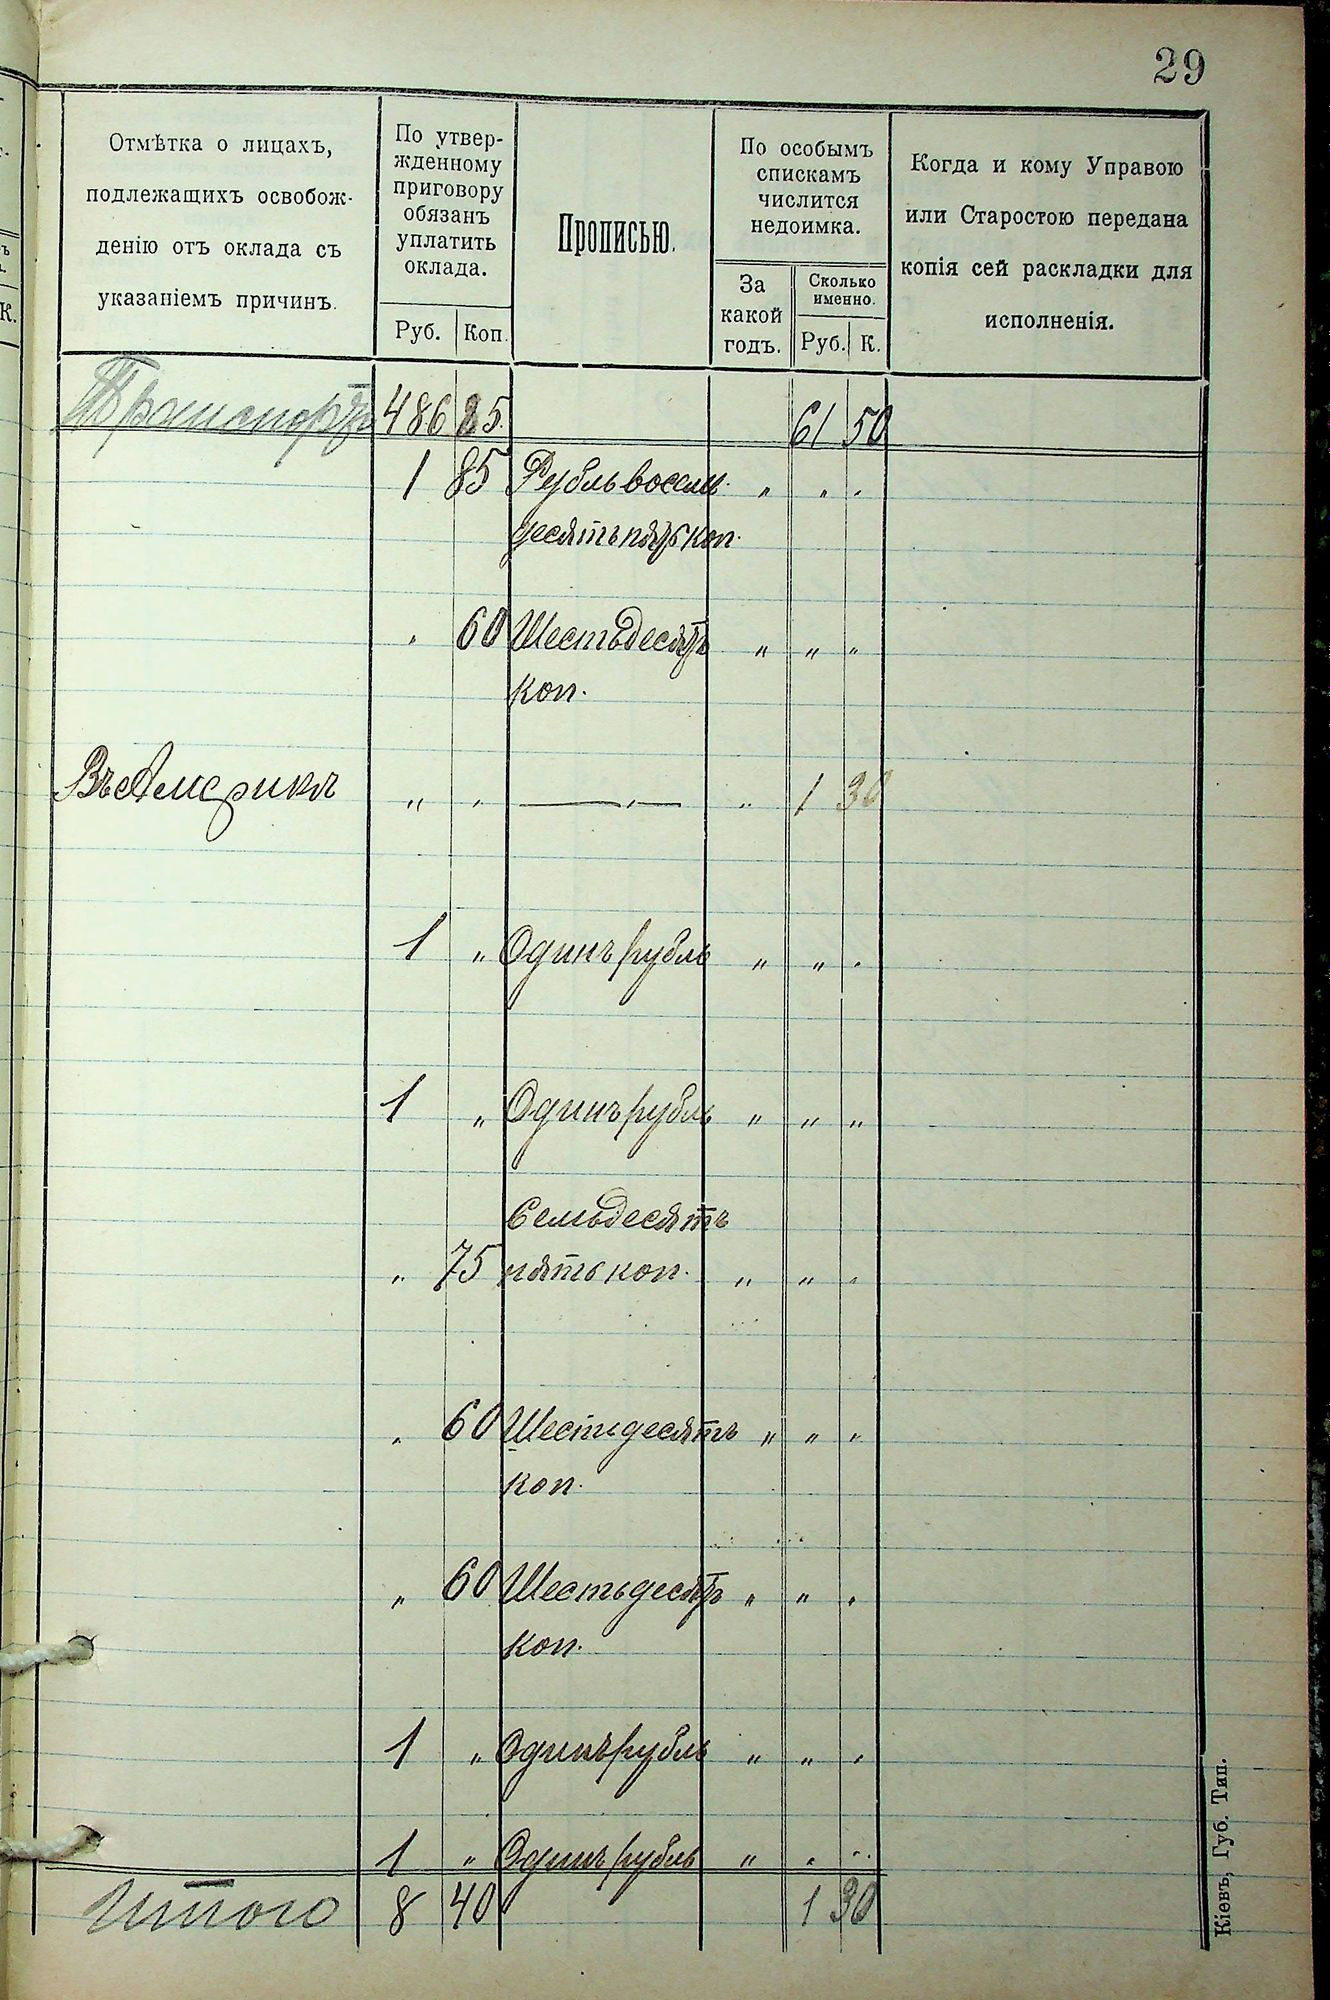 29
Отмѣтка о лицахъ,
подлежащихъ освобож-
денію отъ оклада съ
указаніемъ причинъ.
По утвер-
жденному
приговору
обязанъ
уплатить
оклада.
Руб. Коп.
Прописью.
По особымъ
спискамъ
числится
недоимка.
За
какой
годъ.
Сколько
именно.
Руб. К.
Когда и кому Управою
или Старостою передана
копія сей раскладки для
исполненія.
Транспортъ 486 85. 61 50
1 85 Рубль восемь- " " "
десятъ пять коп.
" 60 Шестьдесятъ " " "
коп.
Въ Америкѣ " " — " — " 1 30
1 " Одинъ рубль " " "
1 " Одинъ рубль " " "
Семьдесятъ
" 75 пять коп. " " "
" 60 Шестьдесятъ " " "
коп.
" 60 Шестьдесятъ " " "
коп.
1 " Одинъ рубль " " "
1 " Одинъ рубль " " "
Итого 8 40 1 30
Кіевъ, Губ. Тип.
ъ
К.